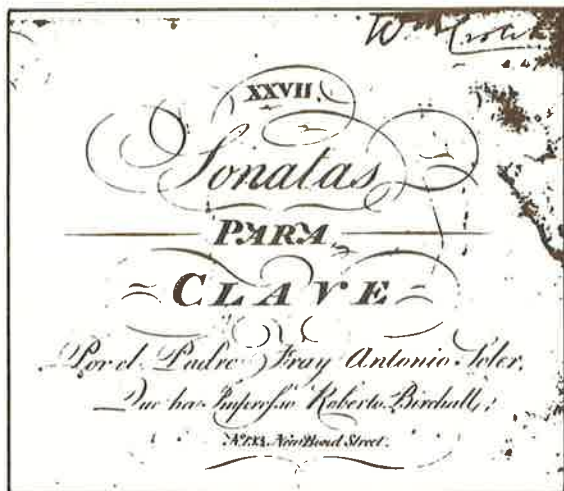 Wm Crotch
XXVII.
Sonatas
PARA
CLAVE
Por el Padre Fray Antonio Soler.
Que ha Impresso Roberto Birchall,
New Bond Street.